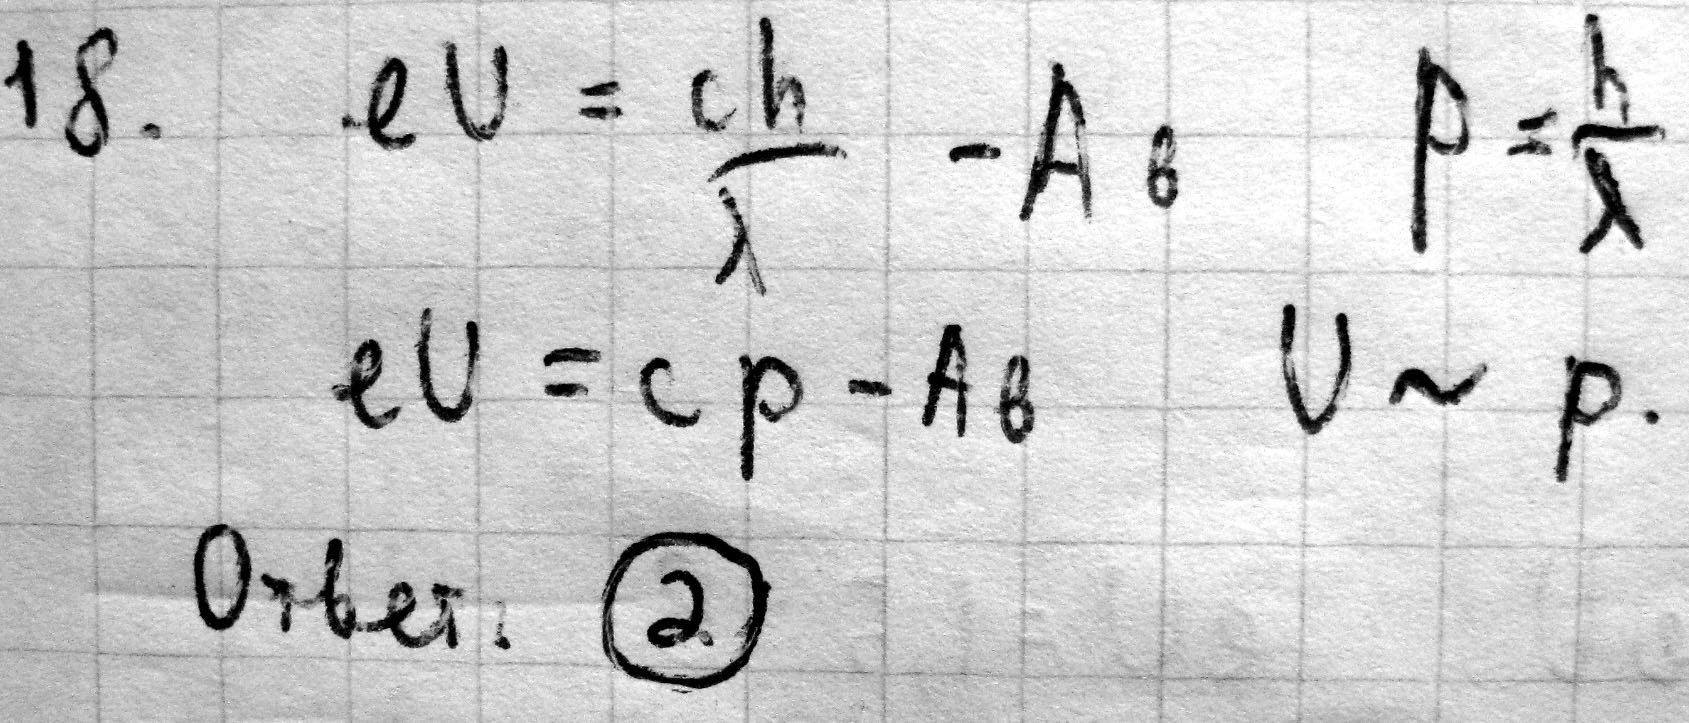 18. eU = ch/λ - Aв p = h/λ
eU = cp - Aв U ~ p.
Ответ: 2